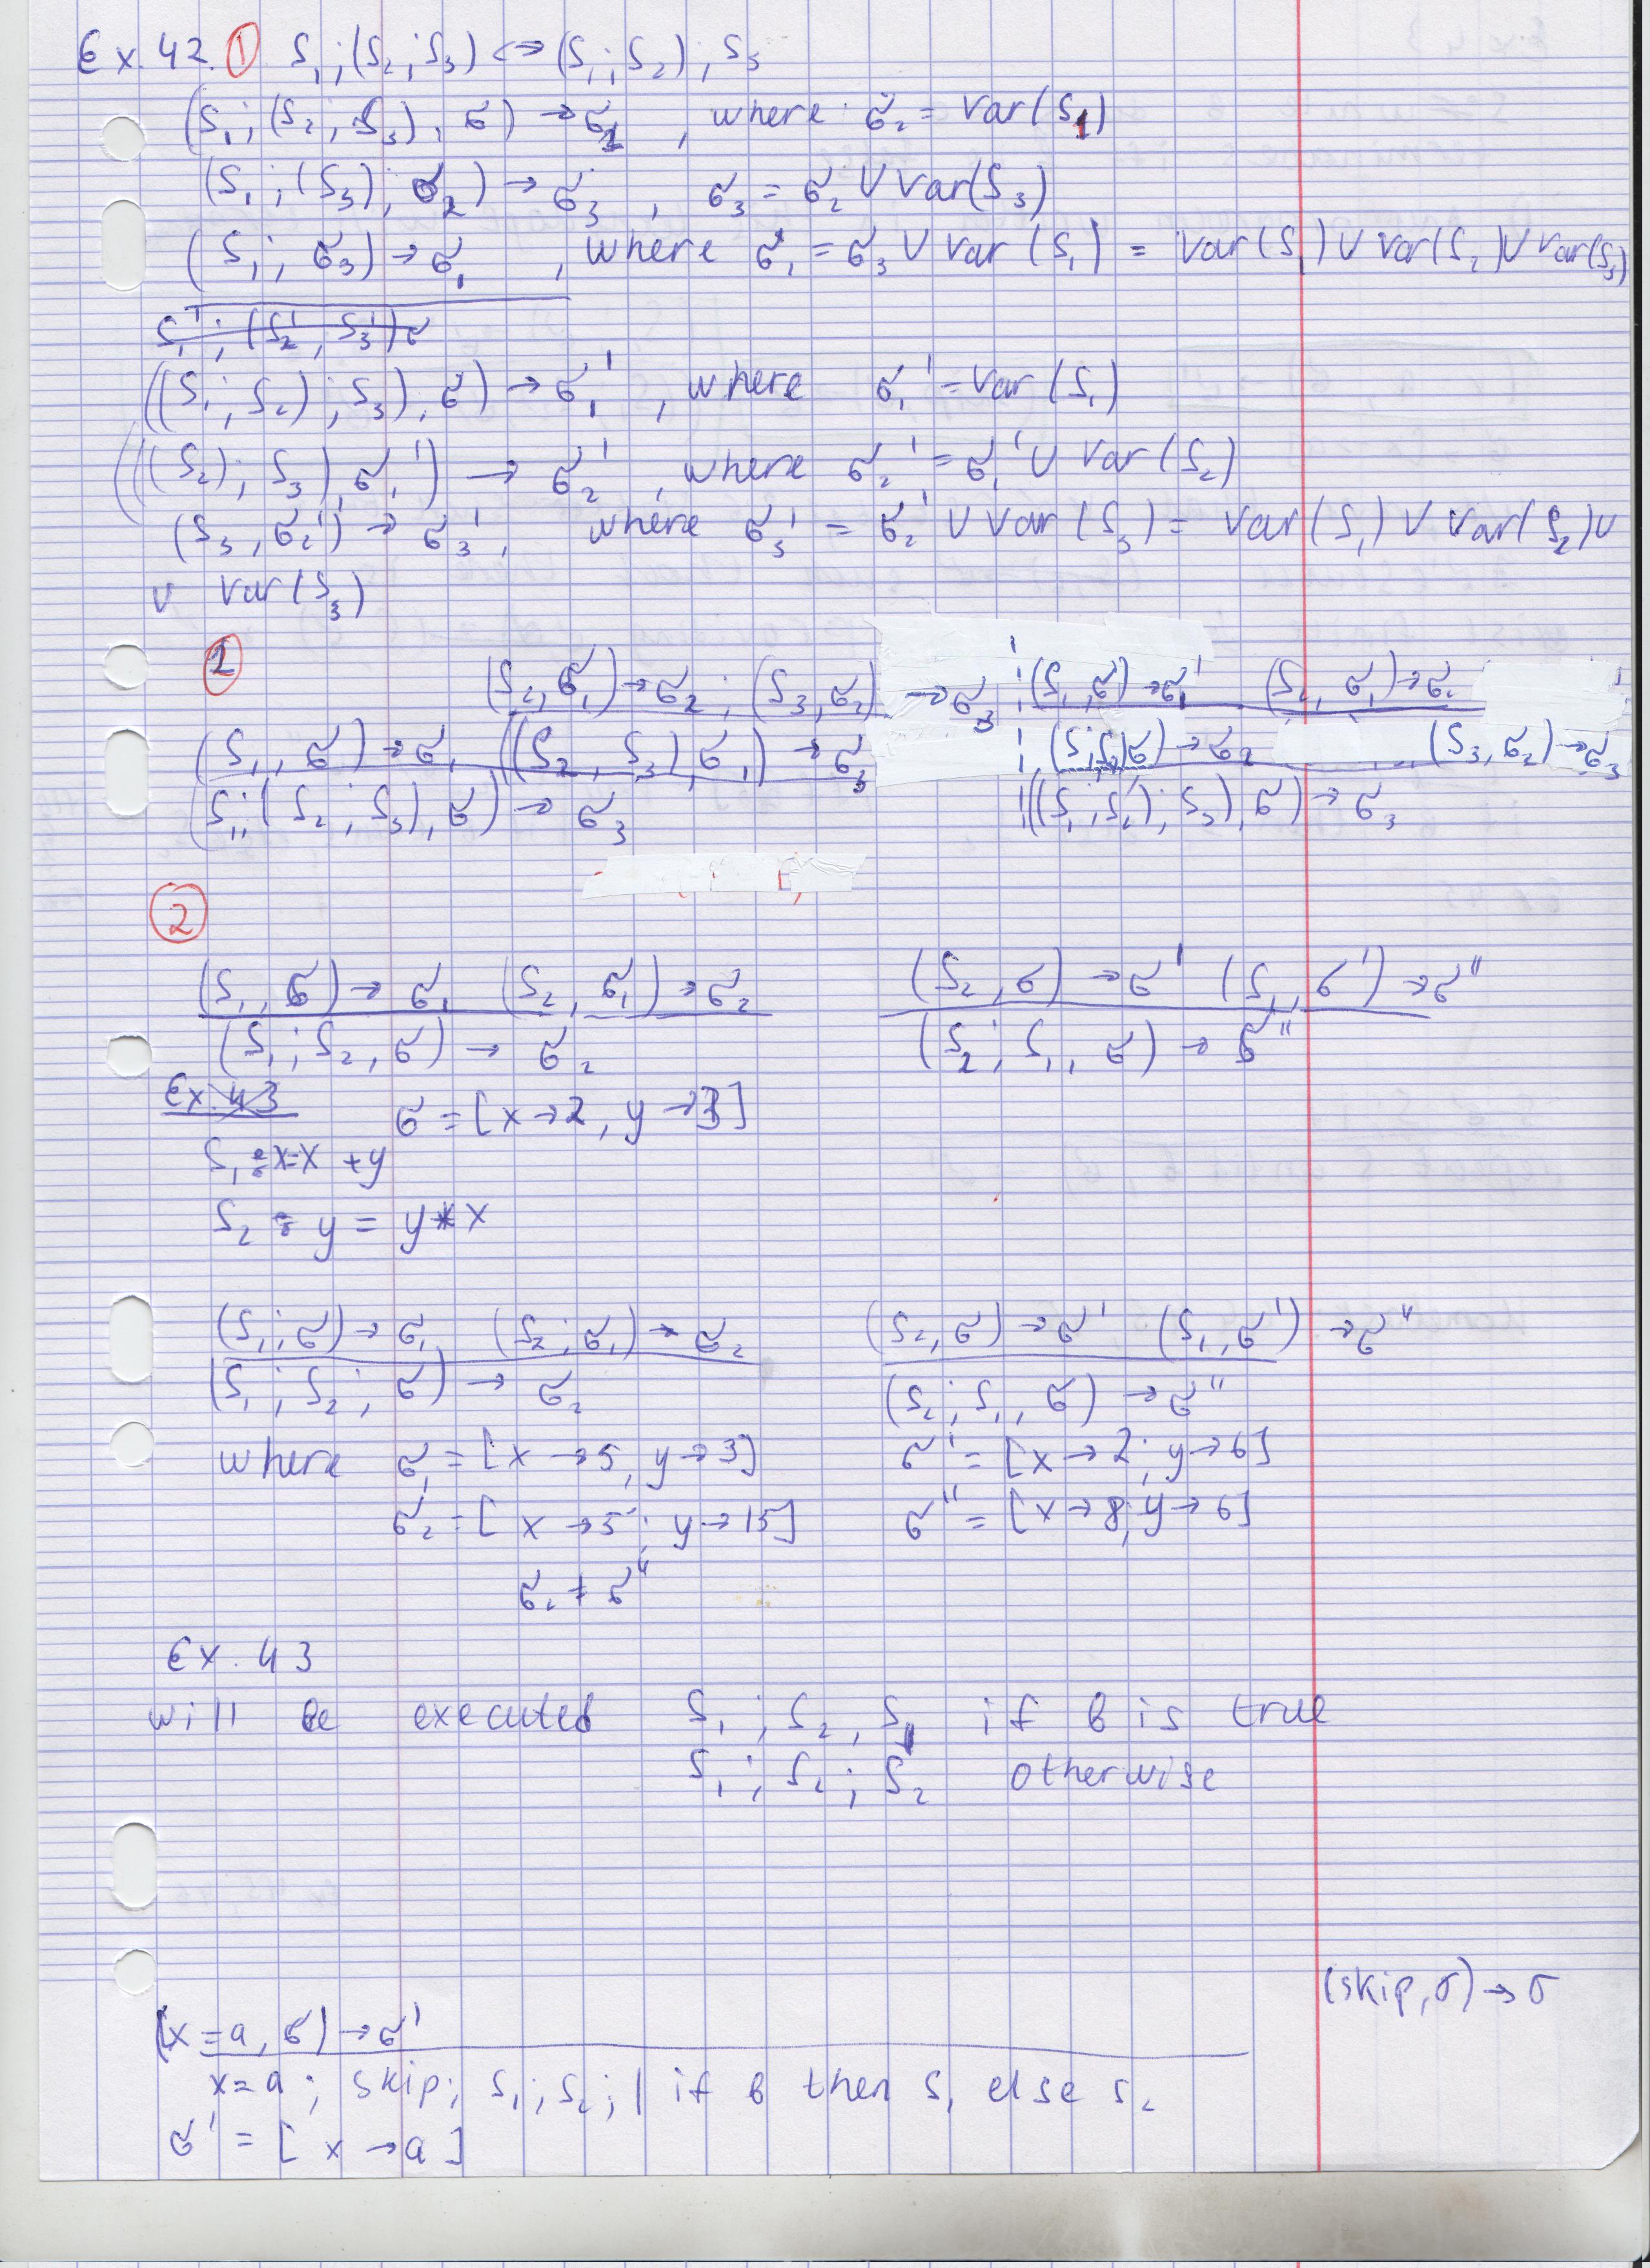 Ex. 42. ① S₁;(S₂;S₃) <=> (S₁;S₂);S₃
(S₁;(S₂;S₃), σ) → σ₂, where σ₂ = Var(S₁)
(S₁;(S₃); σ₂) → σ₃, σ₃ = σ₂ ∪ Var(S₃)
(S₁; σ₃) → σ₁, where σ₁ = σ₃ ∪ Var(S₁) = Var(S₁) ∪ Var(S₂) ∪ Var(S₃)
S₁';(S₂';S₃')σ
((S₁;S₂);S₃), σ) → σ₁', where σ₁' = Var(S₁)
(((S₂);S₃), σ₁') → σ₂', where σ₂' = σ₁' ∪ Var(S₂)
(S₃, σ₂') → σ₃', where σ₃' = σ₂' ∪ Var(S₃) = Var(S₁) ∪ Var(S₂) ∪
∪ Var(S₃)
1
(S₂, σ₁) → σ₂; (S₃, σ₂) → σ₃ (S₁, σ) → σ₁ (S₂, σ₁) → σ₂
(S₁, σ) → σ₁ ((S₂, S₃), σ₁) → σ₃ (S₁;S₂, σ) → σ₂ (S₃, σ₂) → σ₃
(S₁;(S₂;S₃), σ) → σ₃ ((S₁;S₂);S₃), σ) → σ₃
②
(S₁, σ) → σ₁ (S₂, σ₁) → σ₂ (S₂, σ) → σ' (S₁, σ') → σ"
(S₁;S₂, σ) → σ₂ (S₂;S₁, σ) → σ"
Ex. 43
σ = [x → 2, y → 3]
S₁ = x = x + y
S₂ = y = y * x
(S₁; σ) → σ₁ (S₂; σ₁) → σ₂ (S₂, σ) → σ' (S₁, σ') → σ"
(S₁;S₂; σ) → σ₂ (S₂;S₁, σ) → σ"
where σ₁ = [x → 5, y → 3] σ' = [x → 2; y → 6]
σ₂ = [x → 5; y → 15] σ" = [x → 8; y → 6]
σ₂ ≠ σ"
Ex. 43
will be executed S₁; S₂, S₁ if b is true
S₁; S₂; S₂ otherwise
(skip, σ) → σ
(x = a, σ) → σ'
x = a; skip; S₁; S₂; | if b then S₁ else S₂
σ' = [x → a]